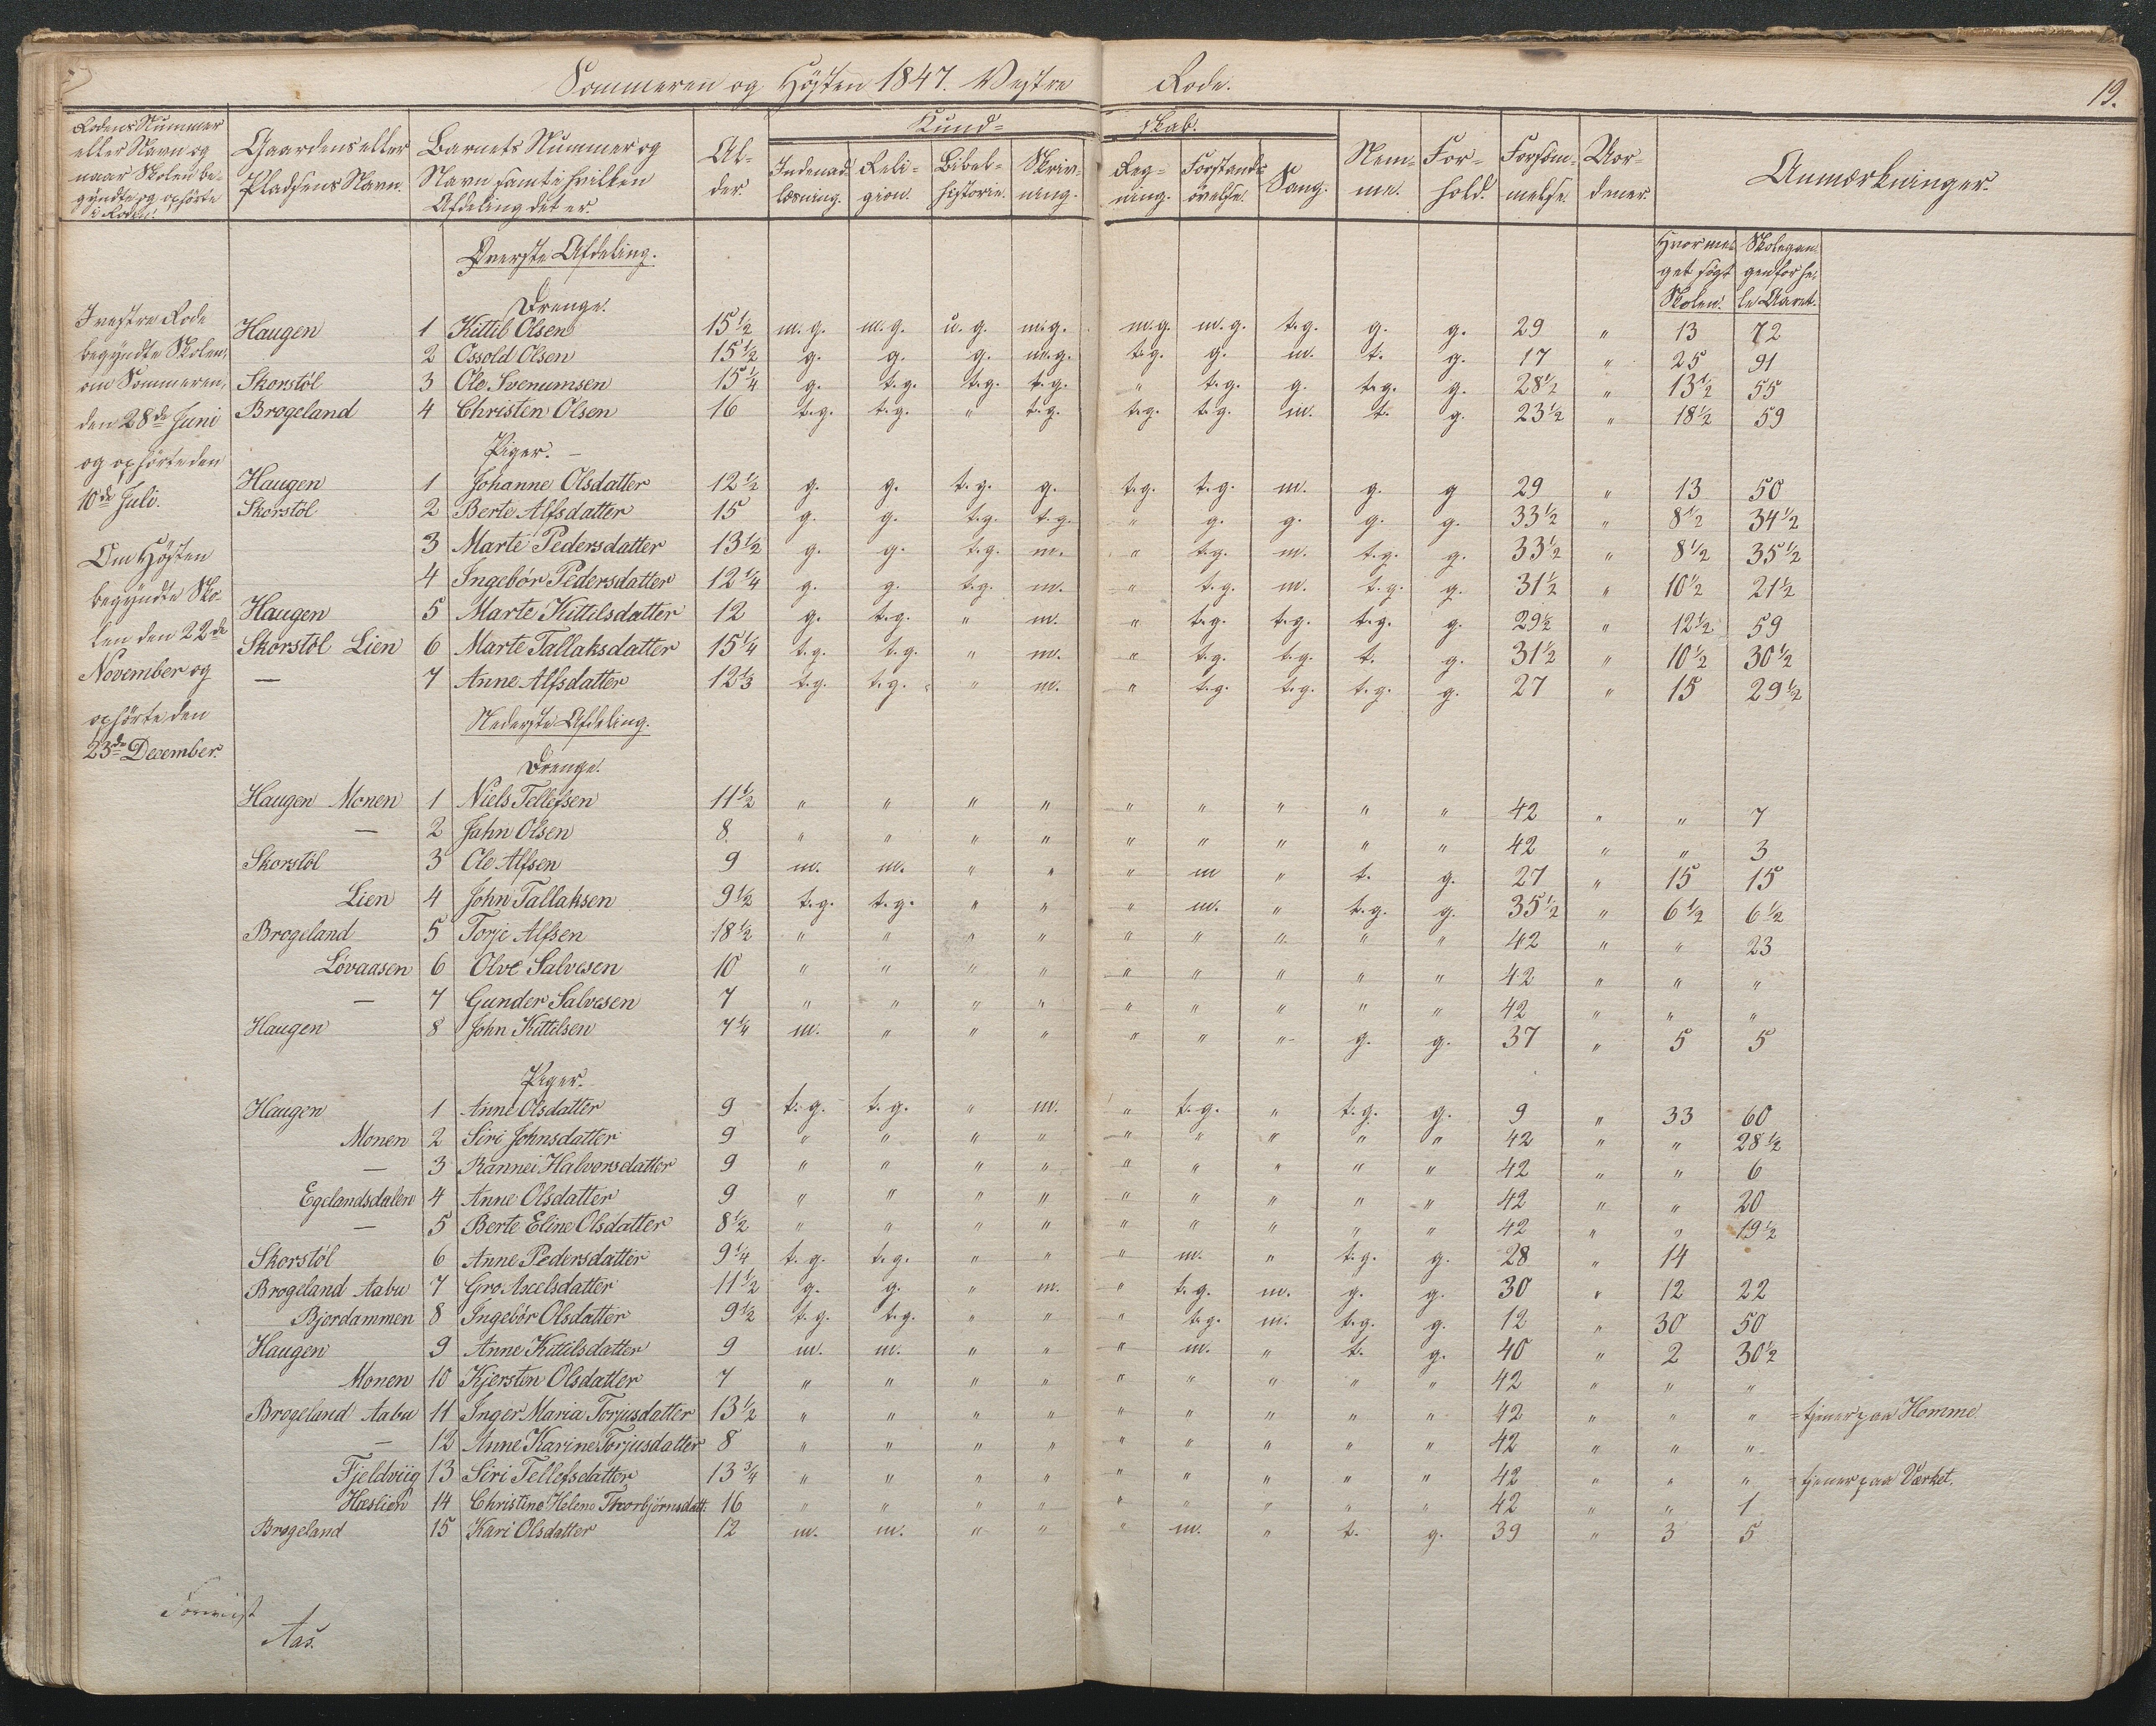 Sommeren og Høsten 1847. Vestre Rode. 19.
Rodens Nummer eller Navn og naar Skolen begyndte og ophørte i Roden. | Gaardens eller Pladsens Navn. | Barnets Nummer og Navn samt i hvilken Afdeling det er. | Alder | Kundskab. | Nemme. | Forhold. | Forsömmelse. | Uordener. | Anmærkninger.
Indenadlæsning. | Religion. | Bibelhistorie. | Skrivning. | Regning. | Forstandsövelse. | Sang.
Hvor meget søgt Skolen. | Skolegangen for hele Aaret.
I vestre Rode
begyndte Skolen,
om Sommeren,
den 28de Juni
og ophørte den
10de Juli.
Om Høsten
begyndte Sko-
len den 22de
November og
ophørte den
23de December.
Øverste Afdeling.
Drenge.
Haugen 1 Kittil Olsen 15½ m.g. m.g. u.g. m.g. m.g. m.g. t.g. g. g. 29 " 13 72
2 Ossold Olsen 15½ g. g. g. m.g. t.g. g. m. t. g. 17 " 25 91
Skorstöl 3 Ole Svenumsen 15¼ g. t.g. t.g. t.g. " t.g. g. t.g. g. 28½ " 13½ 55
Brogeland 4 Christen Olsen 16 t.g. t.g. " t.g. t.g. t.g. m. t. g. 23½ " 18½ 59
Piger. –
Haugen 1 Johanne Olsdatter 12½ g. g. t.g. g. t.g. t.g. m. g. g 29 " 13 50
Skorstöl 2 Berte Alfsdatter 15 g. g. t.g. t.g. " g. g. g. g. 33½ " 8½ 34½
3 Marte Pedersdatter 13½ g. g. t.g. m. " t.g. m. t.g. g. 33½ " 8½ 35½
4 Ingebör Pedersdatter 12¼ g. g. t.g. m. " t.g. m. t.g. g. 31½ " 10½ 21½
Haugen 5 Marte Kittilsdatter 12 g. t.g. " m. " t.g. t.g. t.g. g. 29½ " 12½ 59
Skorstöl Lien 6 Marte Tallaksdatter 15¼ t.g. t.g. " m. " t.g. t.g. t. g. 31½ " 10½ 30½
— 7 Anne Alfsdatter 12⅓ t.g. t.g. " m. " t.g. t.g. t.g. g. 27 " 15 29½
Nederste Afdeling.
Drenge.
Haugen Monen 1 Niels Tellefsen 11½ " " " " " " " " " 42 " " 7
— 2 Jahn Olsen 8 " " " " " " " " " 42 " " 3
Skorstöl 3 Ole Alfsen 9 m. m. " " " m " t. g. 27 " 15 15
Lien 4 John Tallaksen 9½ t.g. t.g. " " " m. " t.g. g. 35½ " 6½ 6½
Brogeland 5 Torje Alfsen 18½ " " " " " " " " " 42 " " 23
Lövaasen 6 Olve Salvesen 10 " " " " " " " " " 42 " " "
— 7 Gunder Salvesen 7 " " " " " " " " " 42 " " "
Haugen 8 John Kittilsen 7¼ m. " " " " " " g. g. 37 " 5 5
Piger.
Haugen 1 Anne Olsdatter 9 t.g. t.g. " m. " t.g. " t.g. g. 9 " 33 60
Monen 2 Siri Johnsdatter 9 " " " " " " " " " 42 " " 28½
— 3 Rannei Halvorsdatter 9 " " " " " " " " " 42 " " 6
Egelandsdalen 4 Anne Olsdatter 9 " " " " " " " " " 42 " " 20
— 5 Berte Eline Olsdatter 8½ " " " " " " " " " 42 " " 19½
Skorstöl 6 Anne Pedersdatter 9¼ t.g. t.g. " " " m. " t.g. g. 28 " 14
Brogeland Aabu 7 Gro Axelsdatter 11½ g. g. " m. " t.g. m. g. g. 30 " 12 22
Bjordammen 8 Ingebör Olsdatter 9½ t.g. t.g. " " " t.g. m. t.g. g. 12 " 30 50
Haugen 9 Anne Kittilsdatter 9 m. m. " " " m. " t. g. 40 " 2 30½
Monen 10 Kjersten Olsdatter 7 " " " " " " " " " 42 " " "
Brogeland Aabu 11 Inger Maria Torjusdatter 13½ " " " " " " " " " 42 " " " = tjener paa Homme.
— 12 Anne Karine Torjusdatter 8 " " " " " " " " " 42 " " "
Fjeldviig 13 Siri Tellefsdatter 13¾ " " " " " " " " " 42 " " " = tjener paa Værket.
Hæslien 14 Christine Helene Thorbjörnsdatt: 16 " " " " " " " " " 42 " " 1
Brogeland 15 Kari Olsdatter 12 m. m. " " " m. " t. g. 39 " 3 5
Aas.